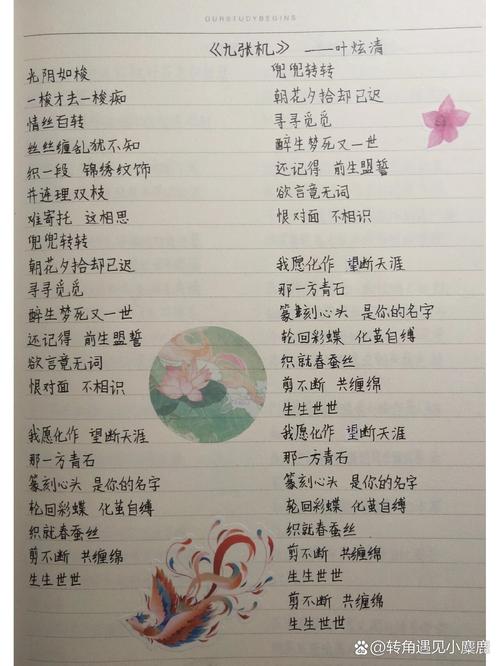 OURSTUDYBEGINS
《九张机》 ——叶炫清
光阴如梭
一梭才去一梭痴
情丝百转
丝丝缠乱犹不知
织一段 锦绣纹饰
并连理双枝
难寄托 这相思
兜兜转转
朝花夕拾却已迟
寻寻觅觅
醉生梦死又一世
还记得 前生盟誓
欲言竟无词
恨对面 不相识
我愿化作 望断天涯
那一方青石
篆刻心头 是你的名字
轮回彩蝶 化茧自缚
织就春蚕丝
剪不断 共缠绵
生生世世
兜兜转转
朝花夕拾却已迟
寻寻觅觅
醉生梦死又一世
还记得 前生盟誓
欲言竟无词
恨对面 不相识
我愿化作 望断天涯
那一方青石
篆刻心头 是你的名字
轮回彩蝶 化茧自缚
织就春蚕丝
剪不断 共缠绵
生生世世
我愿化作 望断天涯
那一方青石
篆刻心头 是你的名字
轮回彩蝶 化茧自缚
织就春蚕丝
剪不断 共缠绵
生生世世
剪不断 共缠绵
生生世世
@转角遇见小麋鹿